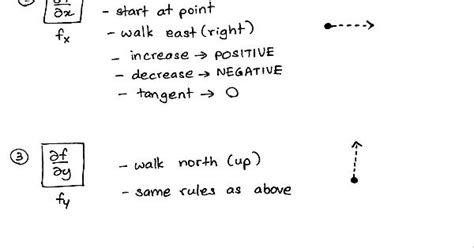 ② ∂f/∂x - start at point
fx - walk east (right)
- increase → POSITIVE
- decrease → NEGATIVE
- tangent → 0
③ ∂f/∂y - walk north (up)
fy - same rules as above